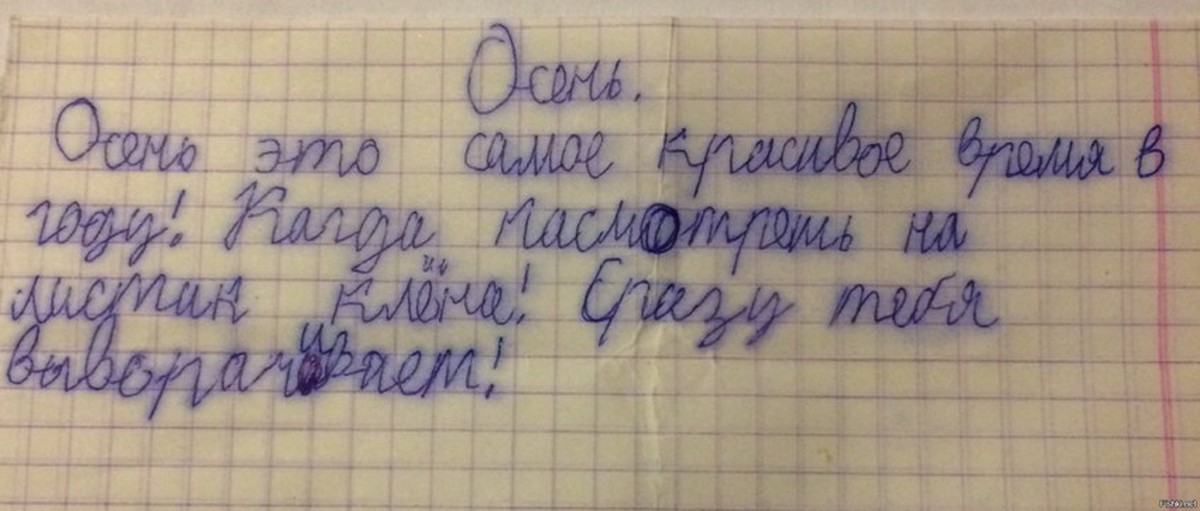 Осень.
Осень это самое красивое время в
году! Кагда пасмотреть на
листик клёна! Сразу тебя
выворачивает!
Fishki.net